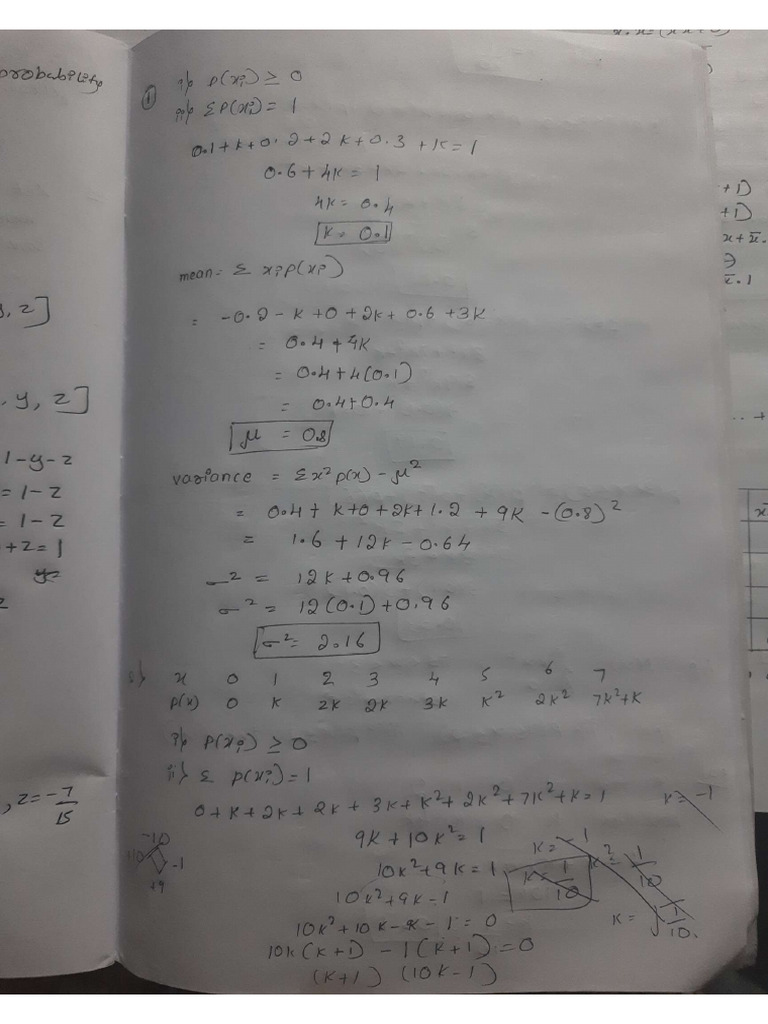 probability
, z]
, y, z]
1-y-z
= 1-z
= 1-z
+z = 1
, z = -7/15
① i) P(xi) ≥ 0
ii) ΣP(xi) = 1
0.1+K+0.2+2K+0.3+K=1
0.6+4K = 1
4K = 0.4
K = 0.1
mean = Σ xi P(xi)
= -0.2 - K + 0 + 2K + 0.6 + 3K
= 0.4 + 4K
= 0.4 + 4(0.1)
= 0.4 + 0.4
μ = 0.8
variance = Σx² P(x) - μ²
= 0.4 + K + 0 + 2K + 1.2 + 9K - (0.8)²
= 1.6 + 12K - 0.64
σ² = 12K + 0.96
σ² = 12(0.1) + 0.96
σ² = 2.16
x 0 1 2 3 4 5 6 7
P(x) 0 K 2K 2K 3K K² 2K² 7K²+K
i) P(xi) ≥ 0
ii) Σ P(xi) = 1
0+K+2K+2K+3K+K²+2K²+7K²+K=1
9K + 10K² = 1
10K² + 9K = 1
10K² + 9K - 1
10K² + 10K - K - 1 = 0
10K(K+1) - 1(K+1) = 0
(K+1) (10K-1)
K = -1
K = -1
K² = 1/10
K = 1/10
K = √1/10
-10
+10 -1
+9
+1)
+1)
x + x̄.
x̄.1
.. +